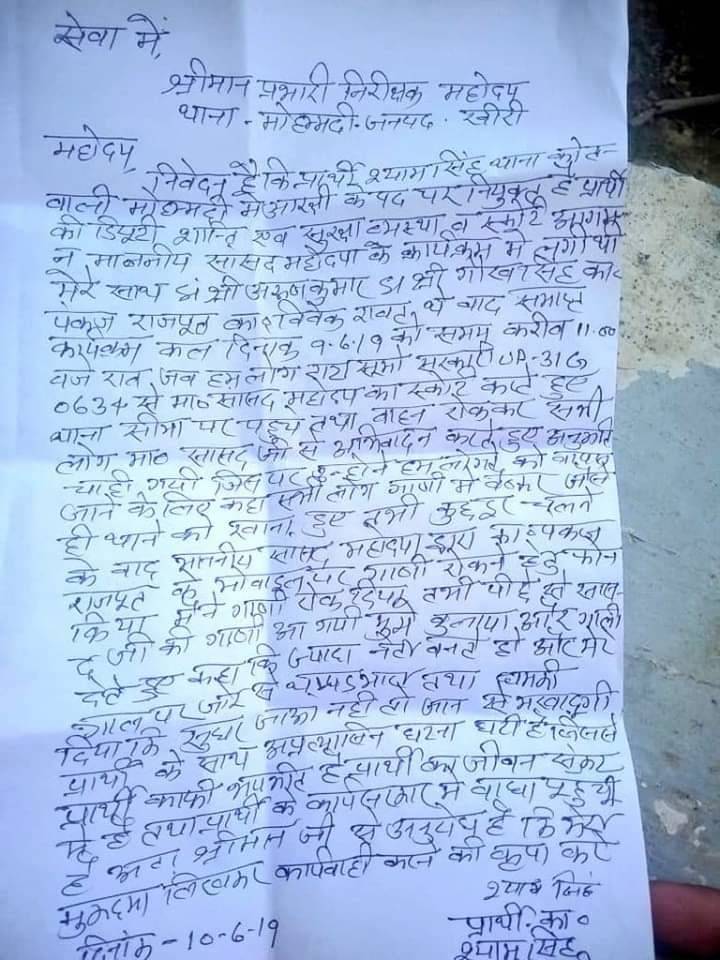 सेवा में,
श्रीमान प्रभारी निरीक्षक महोदय
थाना - मोहम्मदी - जनपद - खीरी
महोदय,
निवेदन है कि प्रार्थी श्याम सिंह थाना कोत
वाली मोहम्मदी में आरक्षी के पद पर नियुक्त है प्रार्थी
की डियूटी शान्ति एवं सुरक्षा व्यवस्था व स्कोर्ट आगम
न माननीय सांसद महोदया के कार्यक्रम में लगी थी
मेरे साथ श्री अरूण कुमार श्री सिंह का०
पंकज राजपूत का० विवेक रावत थे बाद समाप्त
कार्यक्रम कल दिनांक 9.6.19 को समय करीब 11.00
बजे रात जब हम लोग सूमो सरकारी UP-31G
0634 से मा० सांसद महोदया का स्कोर्ट करते हुए
थाना सीमा पर पहुंचे तथा वाहन रोककर सभी
लोग मा० सांसद जी से अभिवादन करते हुए अनुमति
चाही गयी जिस पर इन्होंने हम लोगों को वापस
जाने के लिए कहा सभी लोग गाणी में बैठकर जैसे
ही थाने को रवाना हुए तभी कुछ दूर चलने
के बाद माननीय सांसद महोदया द्वारा का० पंकज
राजपूत के मोबाइल पर गाणी रोकने हेतु फोन
किया मैंने गाणी रोक दिया तभी पीछे से सांस
द जी की गाणी आ गयी मुझे बुलाया और गाली
देते हुए कहा कि ज्यादा नेता बनते हो और मेरे
गाल पर जोर से थप्पड मारा तथा धमकी
दिया कि सुधर जाओ नहीं तो जान से मरवा दूंगी
प्रार्थी के साथ अप्रत्यासित घटना घटी है जिससे
प्रार्थी काफी भयभीत है प्रार्थी का जीवन संकट
में है तथा प्रार्थी के कार्य सरकार में बाधा पहुंची
है अतः श्रीमान जी से अनुरोध है कि मेरा
मुकदमा लिखकर कार्यवाही करने की कृपा करें
श्याम सिंह
प्रार्थी का०
श्याम सिंह
दिनांक - 10-6-19